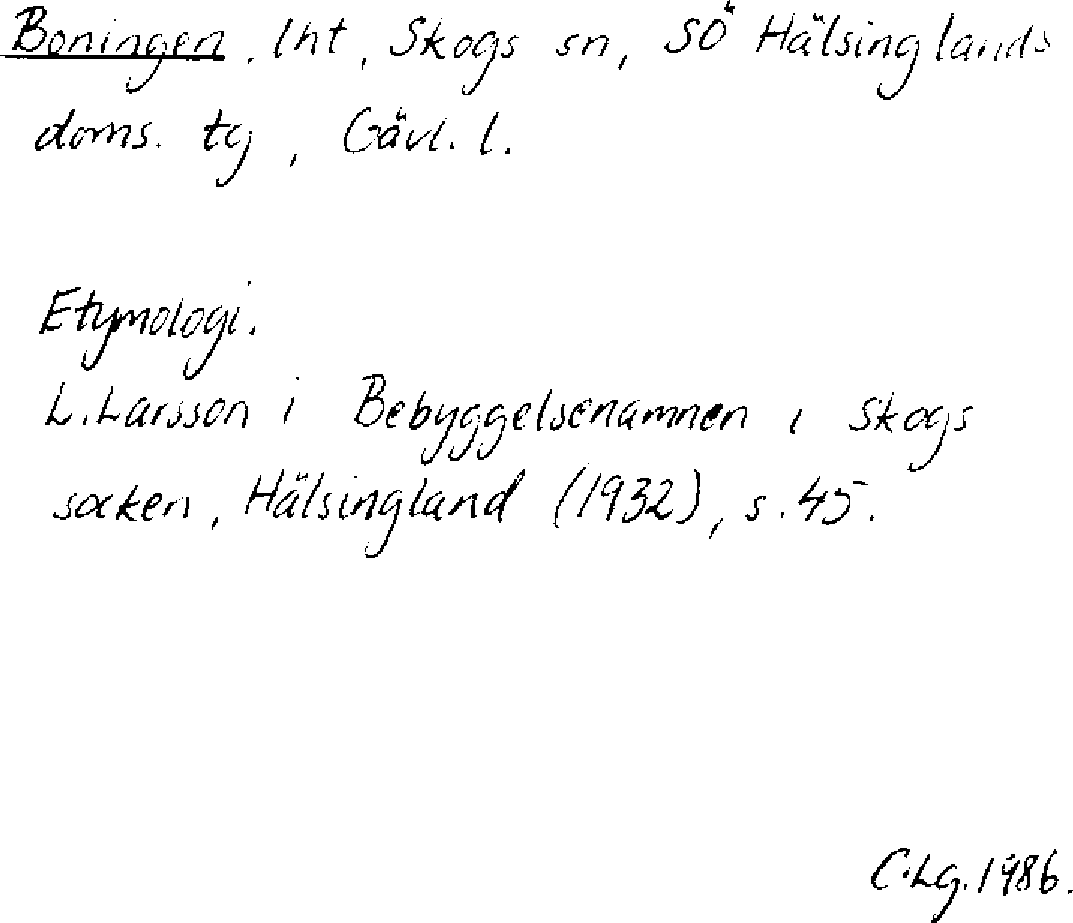 Boningen, lht, Skogs sn, SÖ Hälsinglands
doms. tg, Gävl. l.
Etymologi.
L. Larsson i Bebyggelsenamnen i Skogs
socken, Hälsingland (1932), s. 45.
C.Lg. 1986.